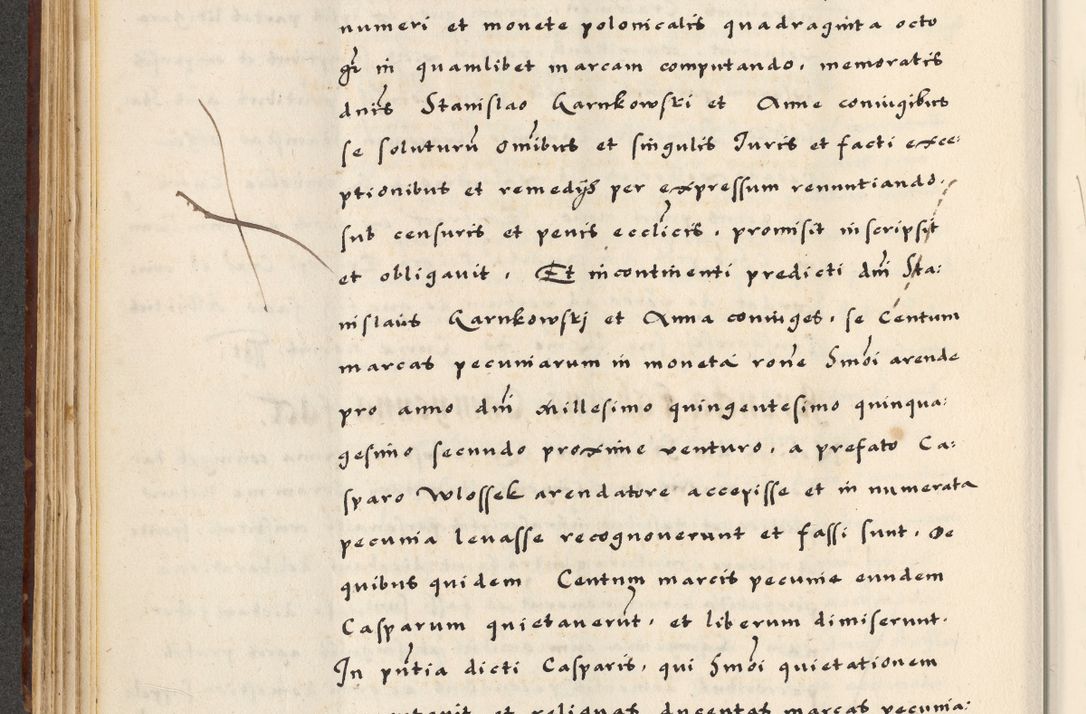 numeri et monete polonicalis quadraginta octo
gr in quamlibet marcam computando, memoratis
dnis Stanislao Karnkowski et Anne coniugibus
se soluturū omībus et singulis Iuris et facti exce:
ptionibus et remedijs per expressum renuntiando,
sub censuris et penis ecclīcis, promisit inscripsit
et obligavit, Et incontinenti predicti dnī Sta:
nislaus Karnkowskj et Anna coniuges, se Centum
marcas pecuniarum in moneta rone Smōi arende
pro anno dnī Millesimo quingentesimo quinqua:
gesimo secundo proxime venturo, a prefato Ca:
sparo Wlossek arendatore accepisse et in numerata
pecunia levasse recognoverunt et fassi sunt, De
quibus quidem Centum marcis pecunie eundem
Casparum quietaverūt, et liberum dimiserunt,
In pn̄tia dicti Casparis, qui Smōi quietationem
et reliquas ducentas marcas pecunia: